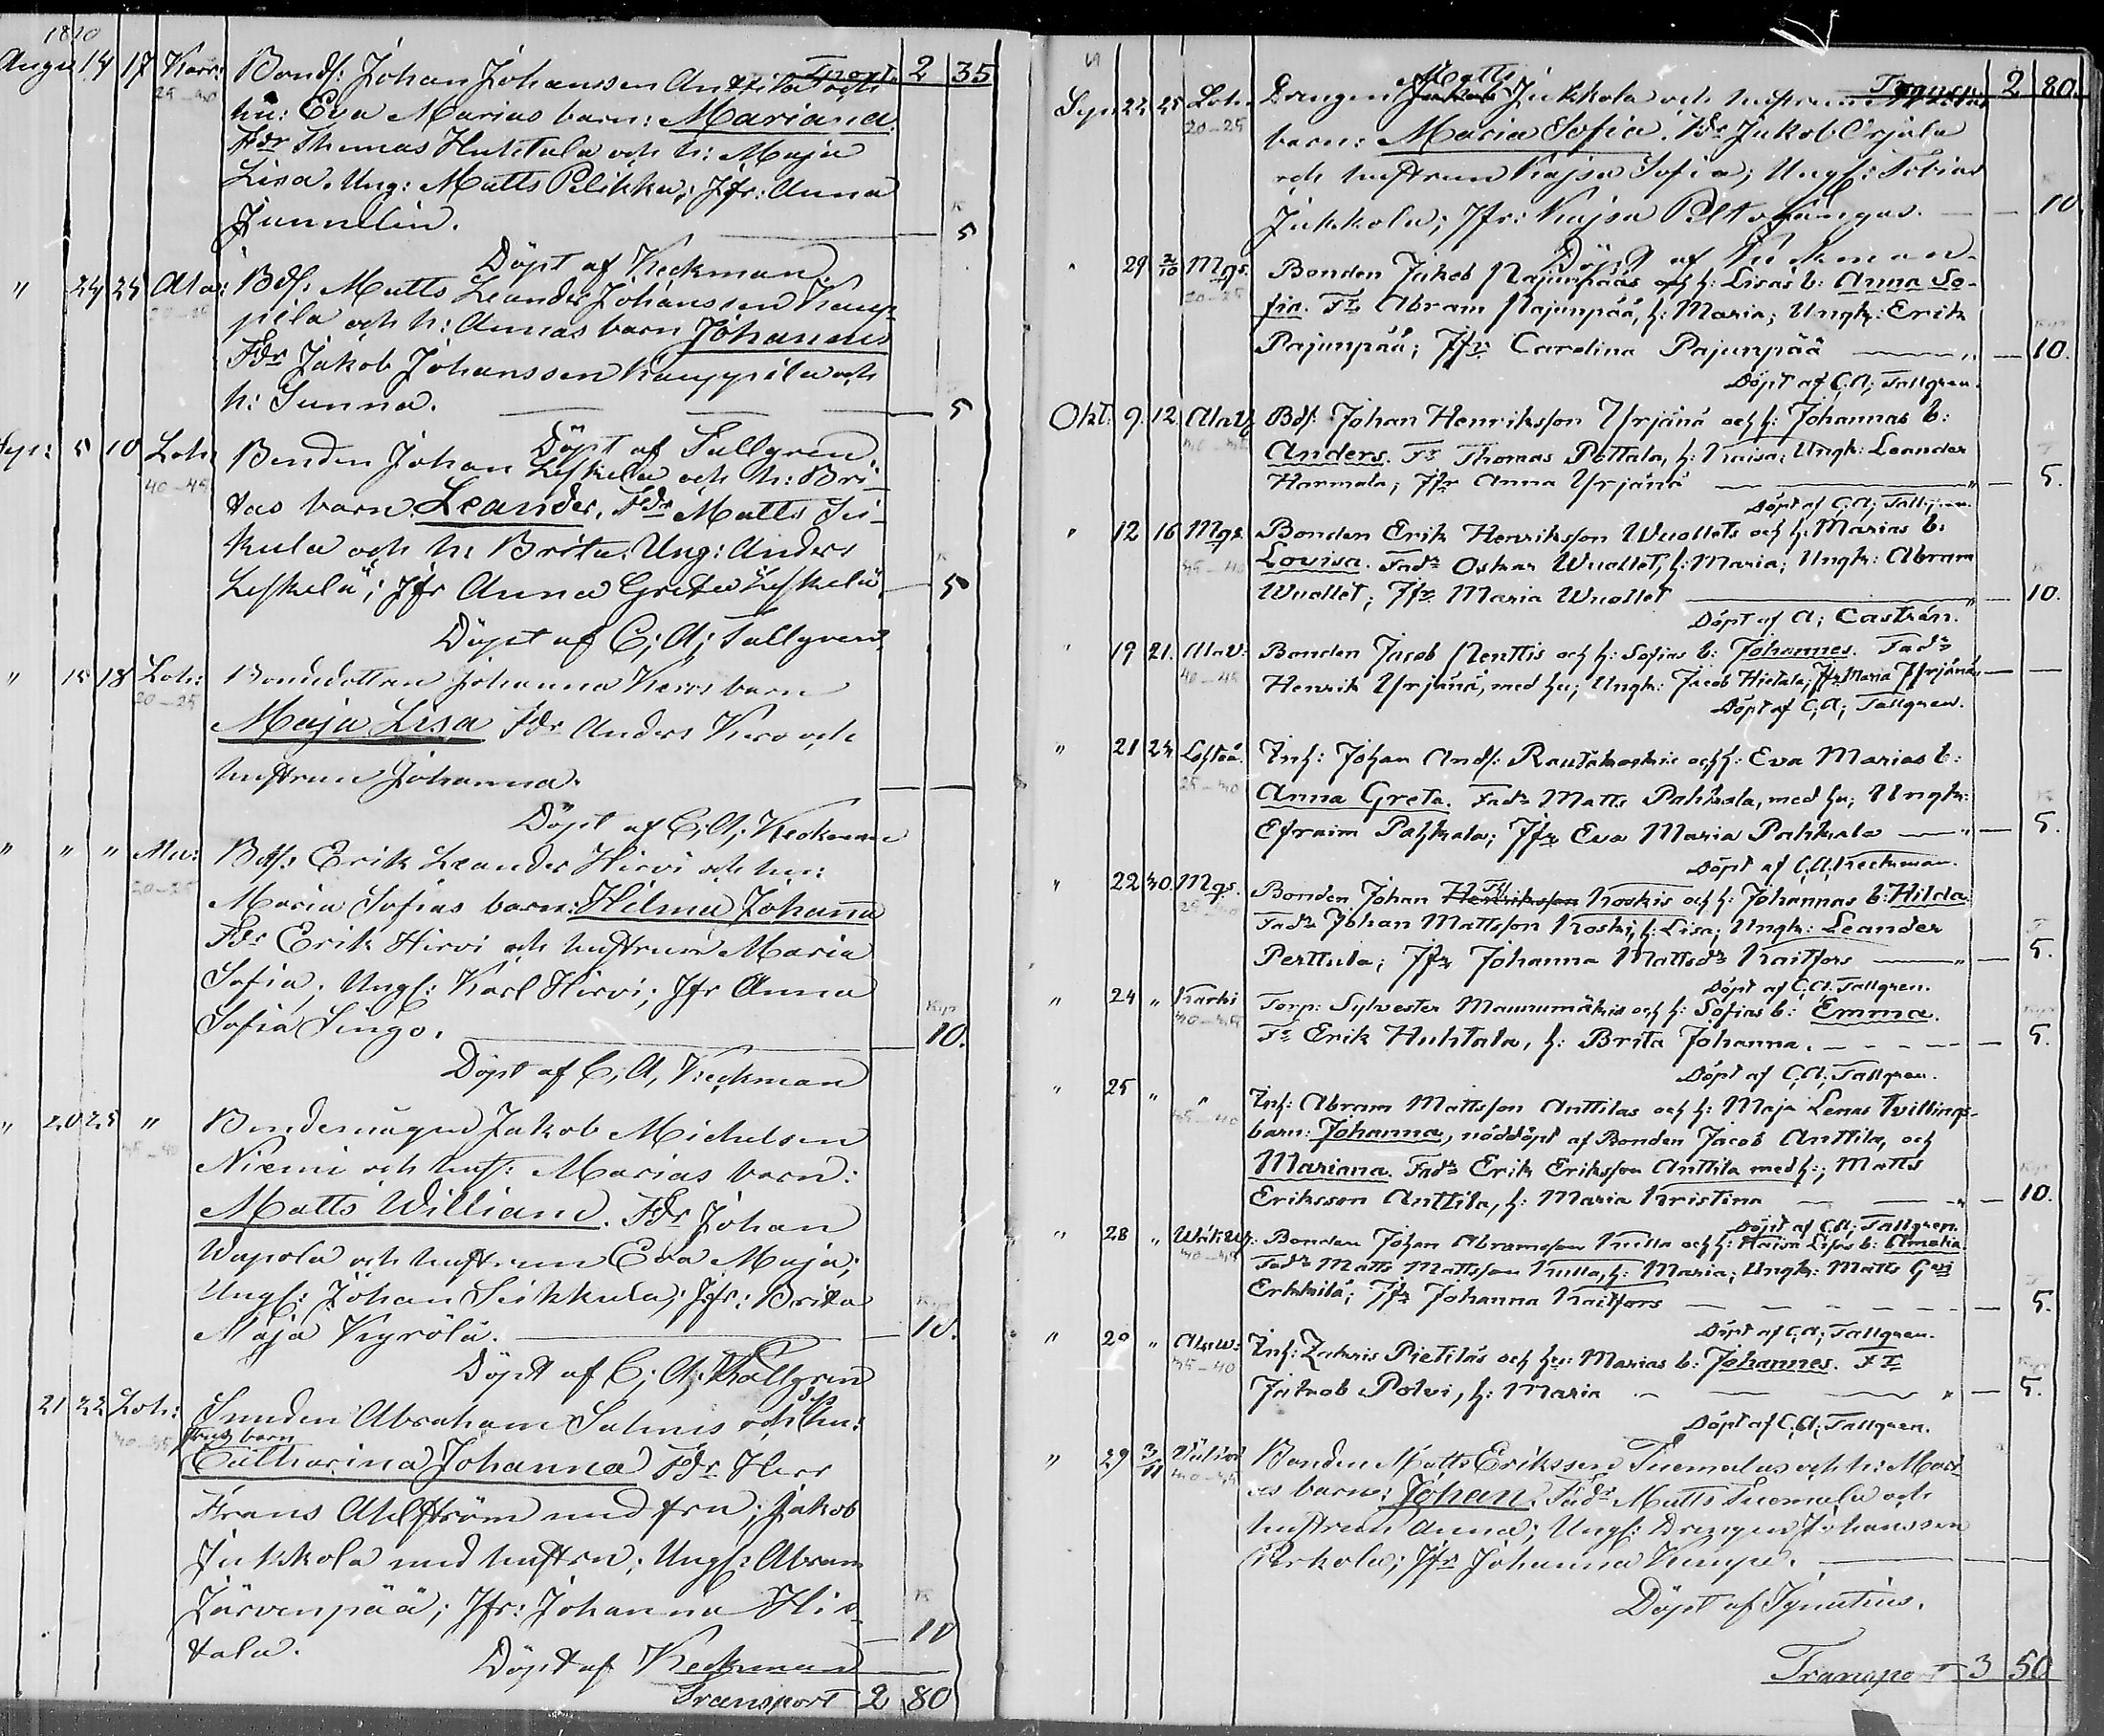 1870
Augu 14 17 Karr: Bonds: Johan Johansson Anttila och Transp. 2 35
25-30 hu: Eva Marias barn: Mariana.
Fdr Thomas Huhtala och h: Maja
Lisa. Ung: Matts Pelikka; Jfr: Anna
Junnelin. 5
Döpt af Keckman.
" 24 25 Ala: Bds: Matts Leander Johansson Kaup-
pila och h: Annas barn Johannes
Fdr Jakob Johansson Kauppila och
h: Sanna. 5
Döpt af Tallgren
Sep: 5 10 Loh: Bonden Johan Leskelä och h: Bri-
40-45 tas barn Leander. Fdr Matts Sis-
kula och h: Brita. Ung: Anders
Leskelä; Jfr Anna Greta Leskelä 5
Döpt af C; A; Tallgren
" 15 18 Loh: Bondedottren Johanna Keros barn
20-25 Maja Lisa Fdr Anders Kero och
hustrun Johanna.
Döpt af C; A; Keckman
" " " Bds: Erik Leander Hirvi och hu:
20-25 Maria Sofias barn: Hilma Johanna
Fdr Erik Hirvi och hustrun Maria
Sofia; Ungk: Karl Hirvi; Jfr Anna
Sofia Singo. 10.
Döpt af C, A, Keckman
" 20 25 " Bondemågen Jakob Michelsson
35-40 Niemi och hust: Marias barn:
Matts William. Fdr Johan
Wapola och hustrun Eva Maja;
Ungk: Johan Siikkula; Jfr: Brita
Maja Kyrölä. 10.
Döpt af C; A; Tallgren
21 22 Loh: Smeden Abraham Salmis och dess hu:
strus barn
Catharina Johanna Fdr Herr
Frans Ahlström med fru; Jakob
Jukkola med hustru; Ungk: Abram
Järvenpää; Jfr: Johanna Hie-
tala. 10
Döpt af Keckman
Transport 2 80
Sep: 22 25 Loh. Drengen Matts Jukkola och hustrun Transp. 2 80.
20-25 barn: Maria Sofia. Fdr Jakob Orjala
och hustrun Kajsa Sofia; Ungk: Tobias
Jukkola; Jfr: Kajsa Peltokangas. 10.
Döpt af Keckman
" 29 2/10 Mgs. Bonden Jakob Pajunpääs och h: Lisas b: Anna So-
20-25 fia. Fr Abram Pajunpää, h: Maria; Ungk: Erik
Pajunpää; Jfr Carolina Pajunpää 10.
Döpt af C; A; Tallgren.
Okt: 9 12 Alav. Bds: Johan Henriksson Yrjänä och h: Johannas b:
Anders. Fr Thomas Pottala, h: Kaisa; Ungk: Leander
Harmala; Jfr Anna Yrjänä 5.
Döpt af C; A; Tallgren
" 12 16 Mgs. Bonden Erik Henriksson Wuollets och h: Marias b:
35-40 Lovisa. Fadr Oskar Wuollet, h: Maria; Ungk: Abram
Wuollet; Jfr Maria Wuollet 10.
Döpt af A; Castrén.
" 19 21. Alav: Bonden Jacob Penttis och h: Sofias b: Johannes. Fadr
40-45 Henrik Yrjänä, med hu; Ungk: Jacob Hietala; Jfr Maria Yrjänä,
Döpt af C; A; Tallgren.
" 21 23 Lesteå. Inh: Johan Ands: Rautakoskis och h: Eva Marias b:
25-30 Anna Greta. Fadr Matts Pahkala, med hu; Ungk:
Efraim Pahkala; Jfr Eva Maria Pahkala 5.
Döpt af C.A. Keckman.
" 22 30. Mgs. Bonden Johan Henriksson Koskis och h: Johannas b: Hilda.
25-30 Fadr Johan Mattsson Koski, h: Lisa; Ungk: Leander
Perttula; Jfr Johanna Mattsdr Kaitfors 5.
Döpt af C.A. Tallgren.
" 24 " Karhi Torp: Sylvester Maunumäkis och h: Sofias b: Emma.
30-35 Fr Erik Huhtala, h: Brita Johanna. 5.
Döpt af C; A; Tallgren.
" 25 " " Inh: Abram Mattsson Anttilas och h: Maja Lenas Tvillings-
35-40 barn: Johanna, nöddöpt af Bonden Jacob Anttila, och
Mariana. Fadr Erik Eriksson Anttila med h:; Matts
Eriksson Anttila, h: Maria Kristina 10.
Döpt af C; A; Tallgren.
" 28 " Bonden Johan Abramsson Kulla och h: Kaisa Lisas b: Amalia.
Fadr Matts Mattsson Kulla, h: Maria; Ungk: Matts
Erkkilä; Jfr Johanna Kaitfors 5.
Döpt af C; A; Tallgren.
" 20 " Alaw: Inh: Zakris Pietiläs och hu: Marias b: Johannes. Fr
35-40 Jakob Polvi, h: Maria " 5.
Döpt af C; A; Tallgren.
" 29 3/11 Bonden Matts Eriksson Tuomalas och h: Mari-
as barn: Johan. Fadr Matts Tuomala och
hustrun Anna; Ungk: Drengen Johansson
Perkola; Jfr Johanna Kempe.
Döpt af Ignatius.
Transport 3 50